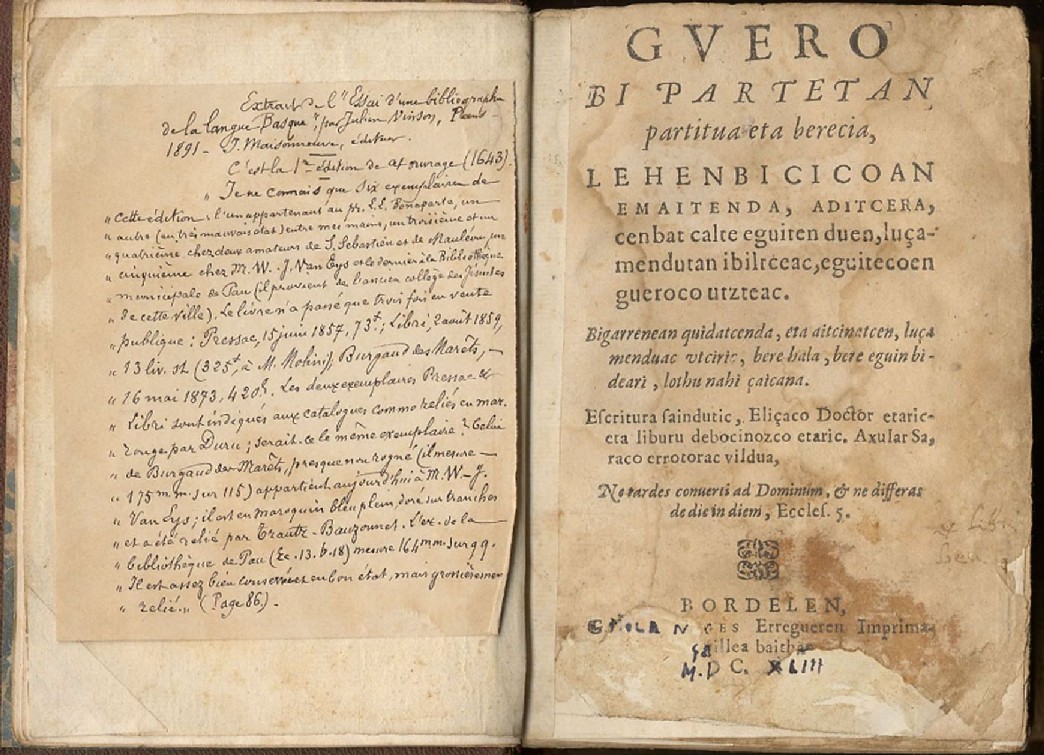 Extrait de l'"Essai d'une bibliographie
de la langue Basque", par Julien Vinson, Paris
1891 - J. Maisonneuve, éditeur.
C'est la 1re édition de cet ouvrage (1643).
" Je ne connais que six exemplaires de
" cette édition : l'un appartenant au pr. L.L. Bonaparte, un
" autre (en très mauvais état) entre mes mains, un troisième et un
" quatrième chez deux amateurs de S. Sebastien et de Mauléon, un
" cinquième chez M. W. J. Van Eys et le dernier à la Bibliothèque
" municipale de Pau (il provient de l'ancien collège des Jesuites
" de cette ville). Le livre n'a passé que trois fois en vente
" publique : Pressac, 15 juin 1857, 73f; Libri, 2 août 1859,
" 13 liv. st (325f, à M. Molini), Burgaud des Marêts, —
" 16 mai 1873, 420f. Les deux exemplaires Pressac &
" Libri sont indiqués aux catalogues comme reliés en mar.
" rouge par Duru ; serait-ce le même exemplaire ? Celui
" de Burgaud des Marêts, presque non rogné (il mesure —
" 175 mm. sur 115) appartient aujourd'hui à M. W. J.
" Van Eys ; il est en maroquin bleu plein, doré sur tranches
" et a été relié par Trautz-Bauzonnet. L'ex. de la
" bibliothèque de Pau (Ee. 13. b. 18) mesure 164mm. sur 99.
" Il est assez bien conservé et en bon état, mais grossièrement
" relié." (Page 86).
GVERO
BI PARTETAN
partitua eta berecia,
LEHENBICICOAN
EMAITENDA, ADITCERA,
cenbat calte eguiten duen, luça-
mendutan ibiltceac, eguitecoen
gueroco utzteac.
Bigarrenean quidatcenda, eta aitcinatcen, luça
menduac vtciric, bere hala, bere eguin bi-
deari, lothu nahi çaicana.
Escritura saindutic, Eliçaco Doctor etaric-
eta liburu debocinozco etaric. Axular Sa,
raco errotorac vildua,
Ne tardes conuerti ad Dominum, & ne differas
de die in diem, Eccles. 5.
BORDELEN,
G. MILANGES Erregueren Imprima-
çaillea baithan
M. DC. XLIII